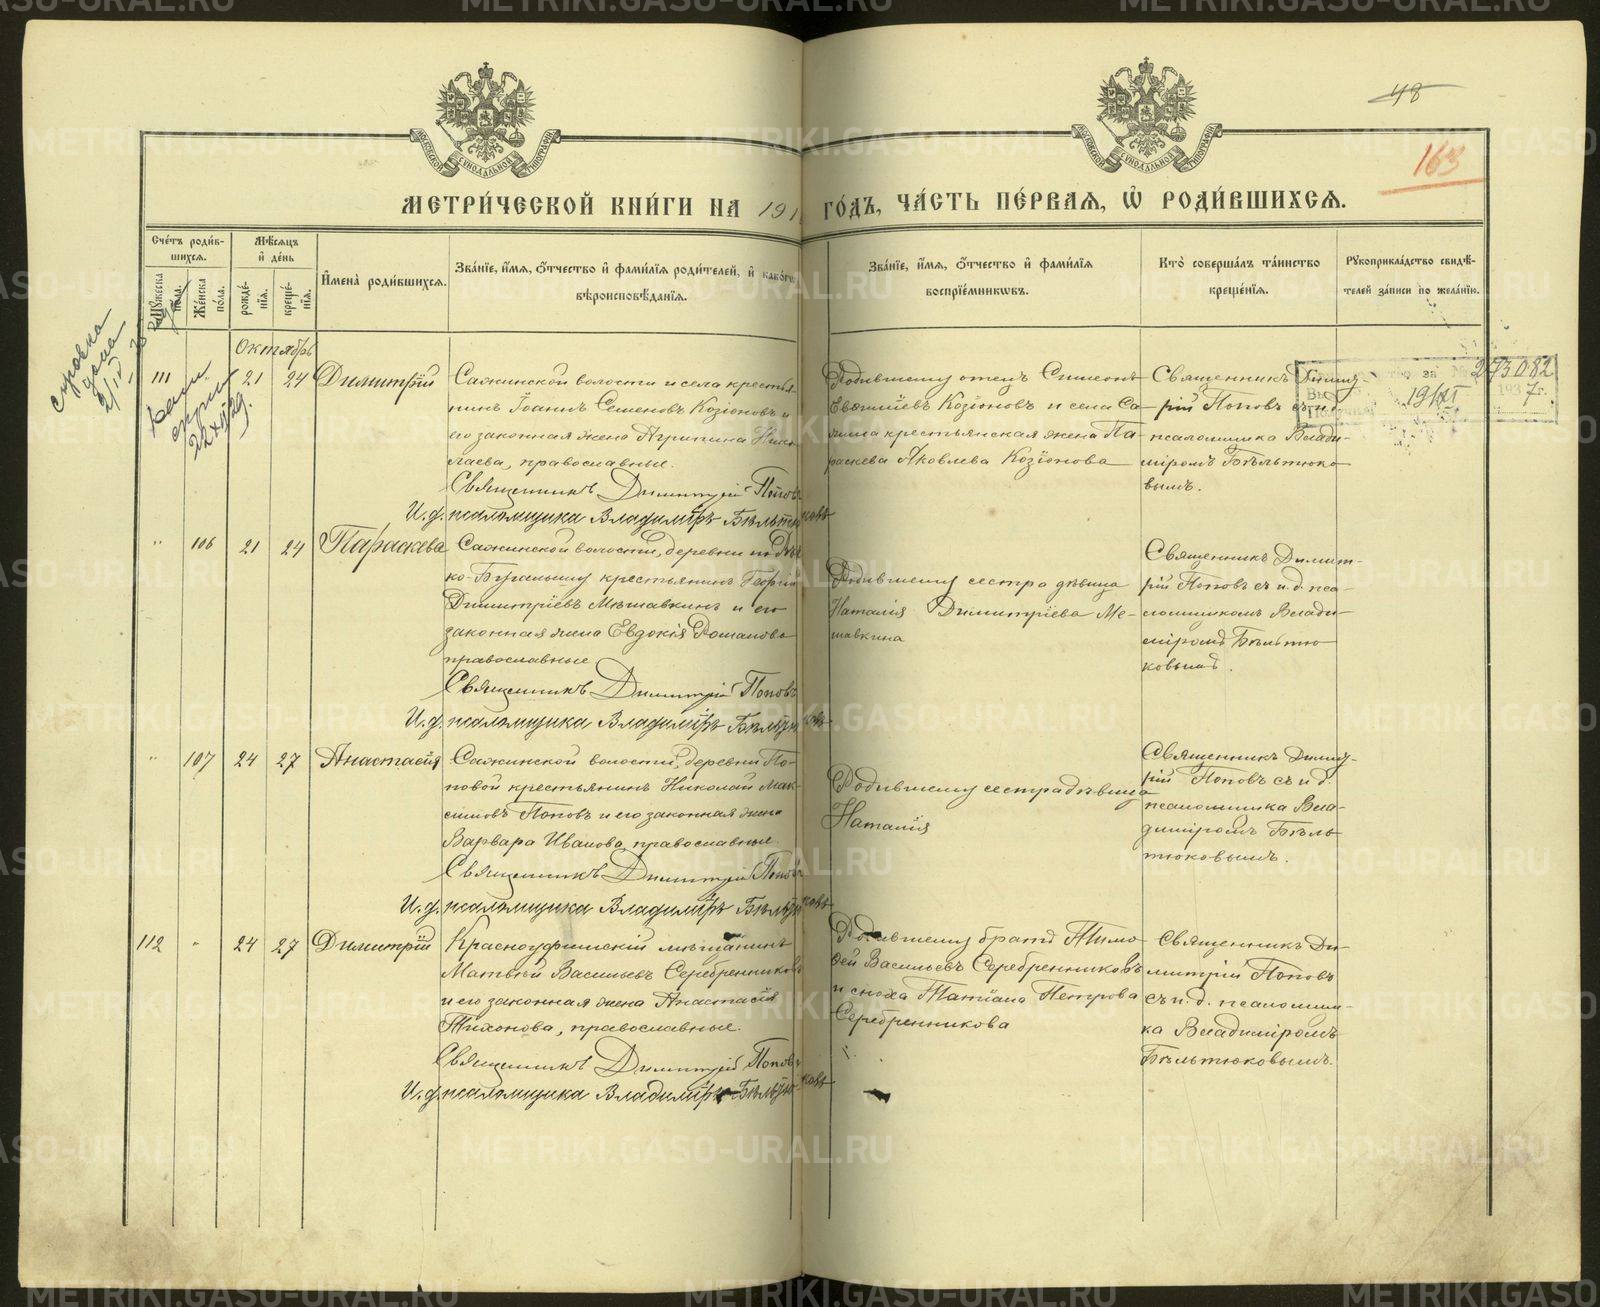 48
163
МЕТРИ́ЧЕСКОЙ КНИ́ГИ НА 191 ГО́ДЪ, ЧА́СТЬ ПЕ́РВАЯ, Ѡ РОДИ́ВШИХСЯ.
Сче́тъ роди́в-
шихся.
Мꙋжеска по́ла.
Же́нска по́ла.
Мѣ́сяцъ
и҆ де́нь
рожде́-
нія.
креще́-
нія.
И҆мена̀ роди́вшихся.
Зва́нїе, и҆́мя, ѻ҆́тчество и҆ фами́лїя роди́телей, и҆ како́гѡ
вѣроисповѣ́данїя.
Зва́нїе, и҆́мя, ѻ҆́тчество и҆ фами́лїя
воспрїе́мниковъ.
Кто̀ соверша́лъ та́инство
креще́нїя.
Рꙋкоприкла́дство свидѣ́-
телей за́писи по жела́нїю.
справка
дана
Октябрь
111 21 24 Димитрій
Сажинской волости и села крестья-
нинъ Іоаннъ Семеновъ Козіоновъ и
его законная жена Агрипина Нико-
лаева, православные.
Священникъ Димитрій Поповъ
И. д. псаломщика Владиміръ Бѣльтюковъ
Родившему отецъ Симеонъ
Евѳиміевъ Козіоновъ и села Са-
жина крестьянская жена Па-
раскева Яковлева Козіонова
Священникъ Димит-
рій Поповъ съ и. д.
псаломщика Влади-
міромъ Бѣльтюко-
вымъ.
273082
19/XI 1937 г.
" 106 21 24 Параскева
Сажинской волости, деревни
Бугалышу крестьянинъ Георгій
Димитріевъ Мешавкинъ и его
законная жена Евдокія Романова
православные
Священникъ Димитрій Поповъ
И. д. псаломщика Владиміръ Бѣльтюковъ
Родившему сестра дѣвица
Наталія Димитріева Ме-
шавкина
Священникъ Димит-
рій Поповъ съ и. д. пса-
ломщикомъ Влади-
міромъ Бѣльтю-
ковымъ.
" 107 24 27 Анастасія
Сажинской волости, деревни По-
повой крестьянинъ Николай Мак-
симовъ Поповъ и его законная жена
Варвара Иванова, православные
Священникъ Димитрій Поповъ
И. д. псаломщика Владиміръ Бѣльтюковъ
Родившему сестра дѣвица
Наталія
Священникъ Димит-
рій Поповъ съ и. д.
псаломщика Вла-
диміромъ Бѣль-
тюковымъ.
112 " 24 27 Димитрій
Красноуфимскій мѣщанинъ
Матвѣй Васильевъ Серебренниковъ
и его законная жена Анастасія
Тихонова, православные.
Священникъ Димитрій Поповъ
И. д. псаломщика Владиміръ Бѣльтюковъ
Родившему братъ Тимо-
ѳей Васильевъ Серебренниковъ
и сноха Татіана Петрова
Серебренникова
Священникъ Ди-
митрій Поповъ
съ и. д. псаломщи-
ка Владиміромъ
Бѣльтюковымъ.
METRIKI.GASO-URAL.RU